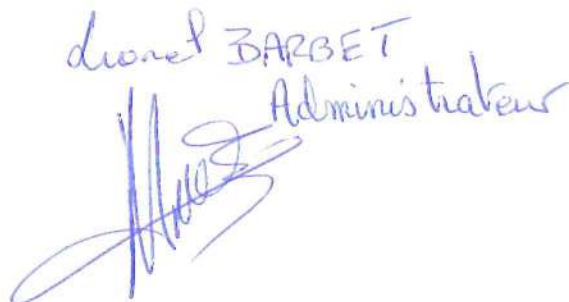 Lionel BARBET
Administrateur